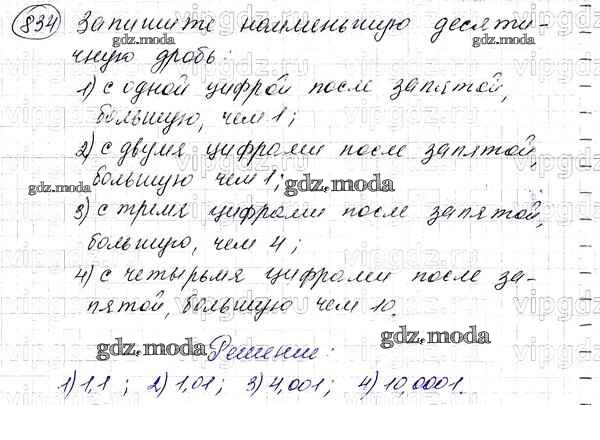 834 Запишите наименьшую десяти-
чную дробь:
1) с одной цифрой после запятой,
большую, чем 1;
2) с двумя цифрами после запятой,
большую чем 1;
3) с тремя цифрами после запятой,
большую, чем 4;
4) с четырьмя цифрами после за-
пятой, большую чем 10.
Решение:
1) 1,1 ; 2) 1,01 ; 3) 4,001 ; 4) 10,0001.
gdz.moda
gdz.moda
gdz.moda
gdz.moda
gdz.moda
gdz.moda